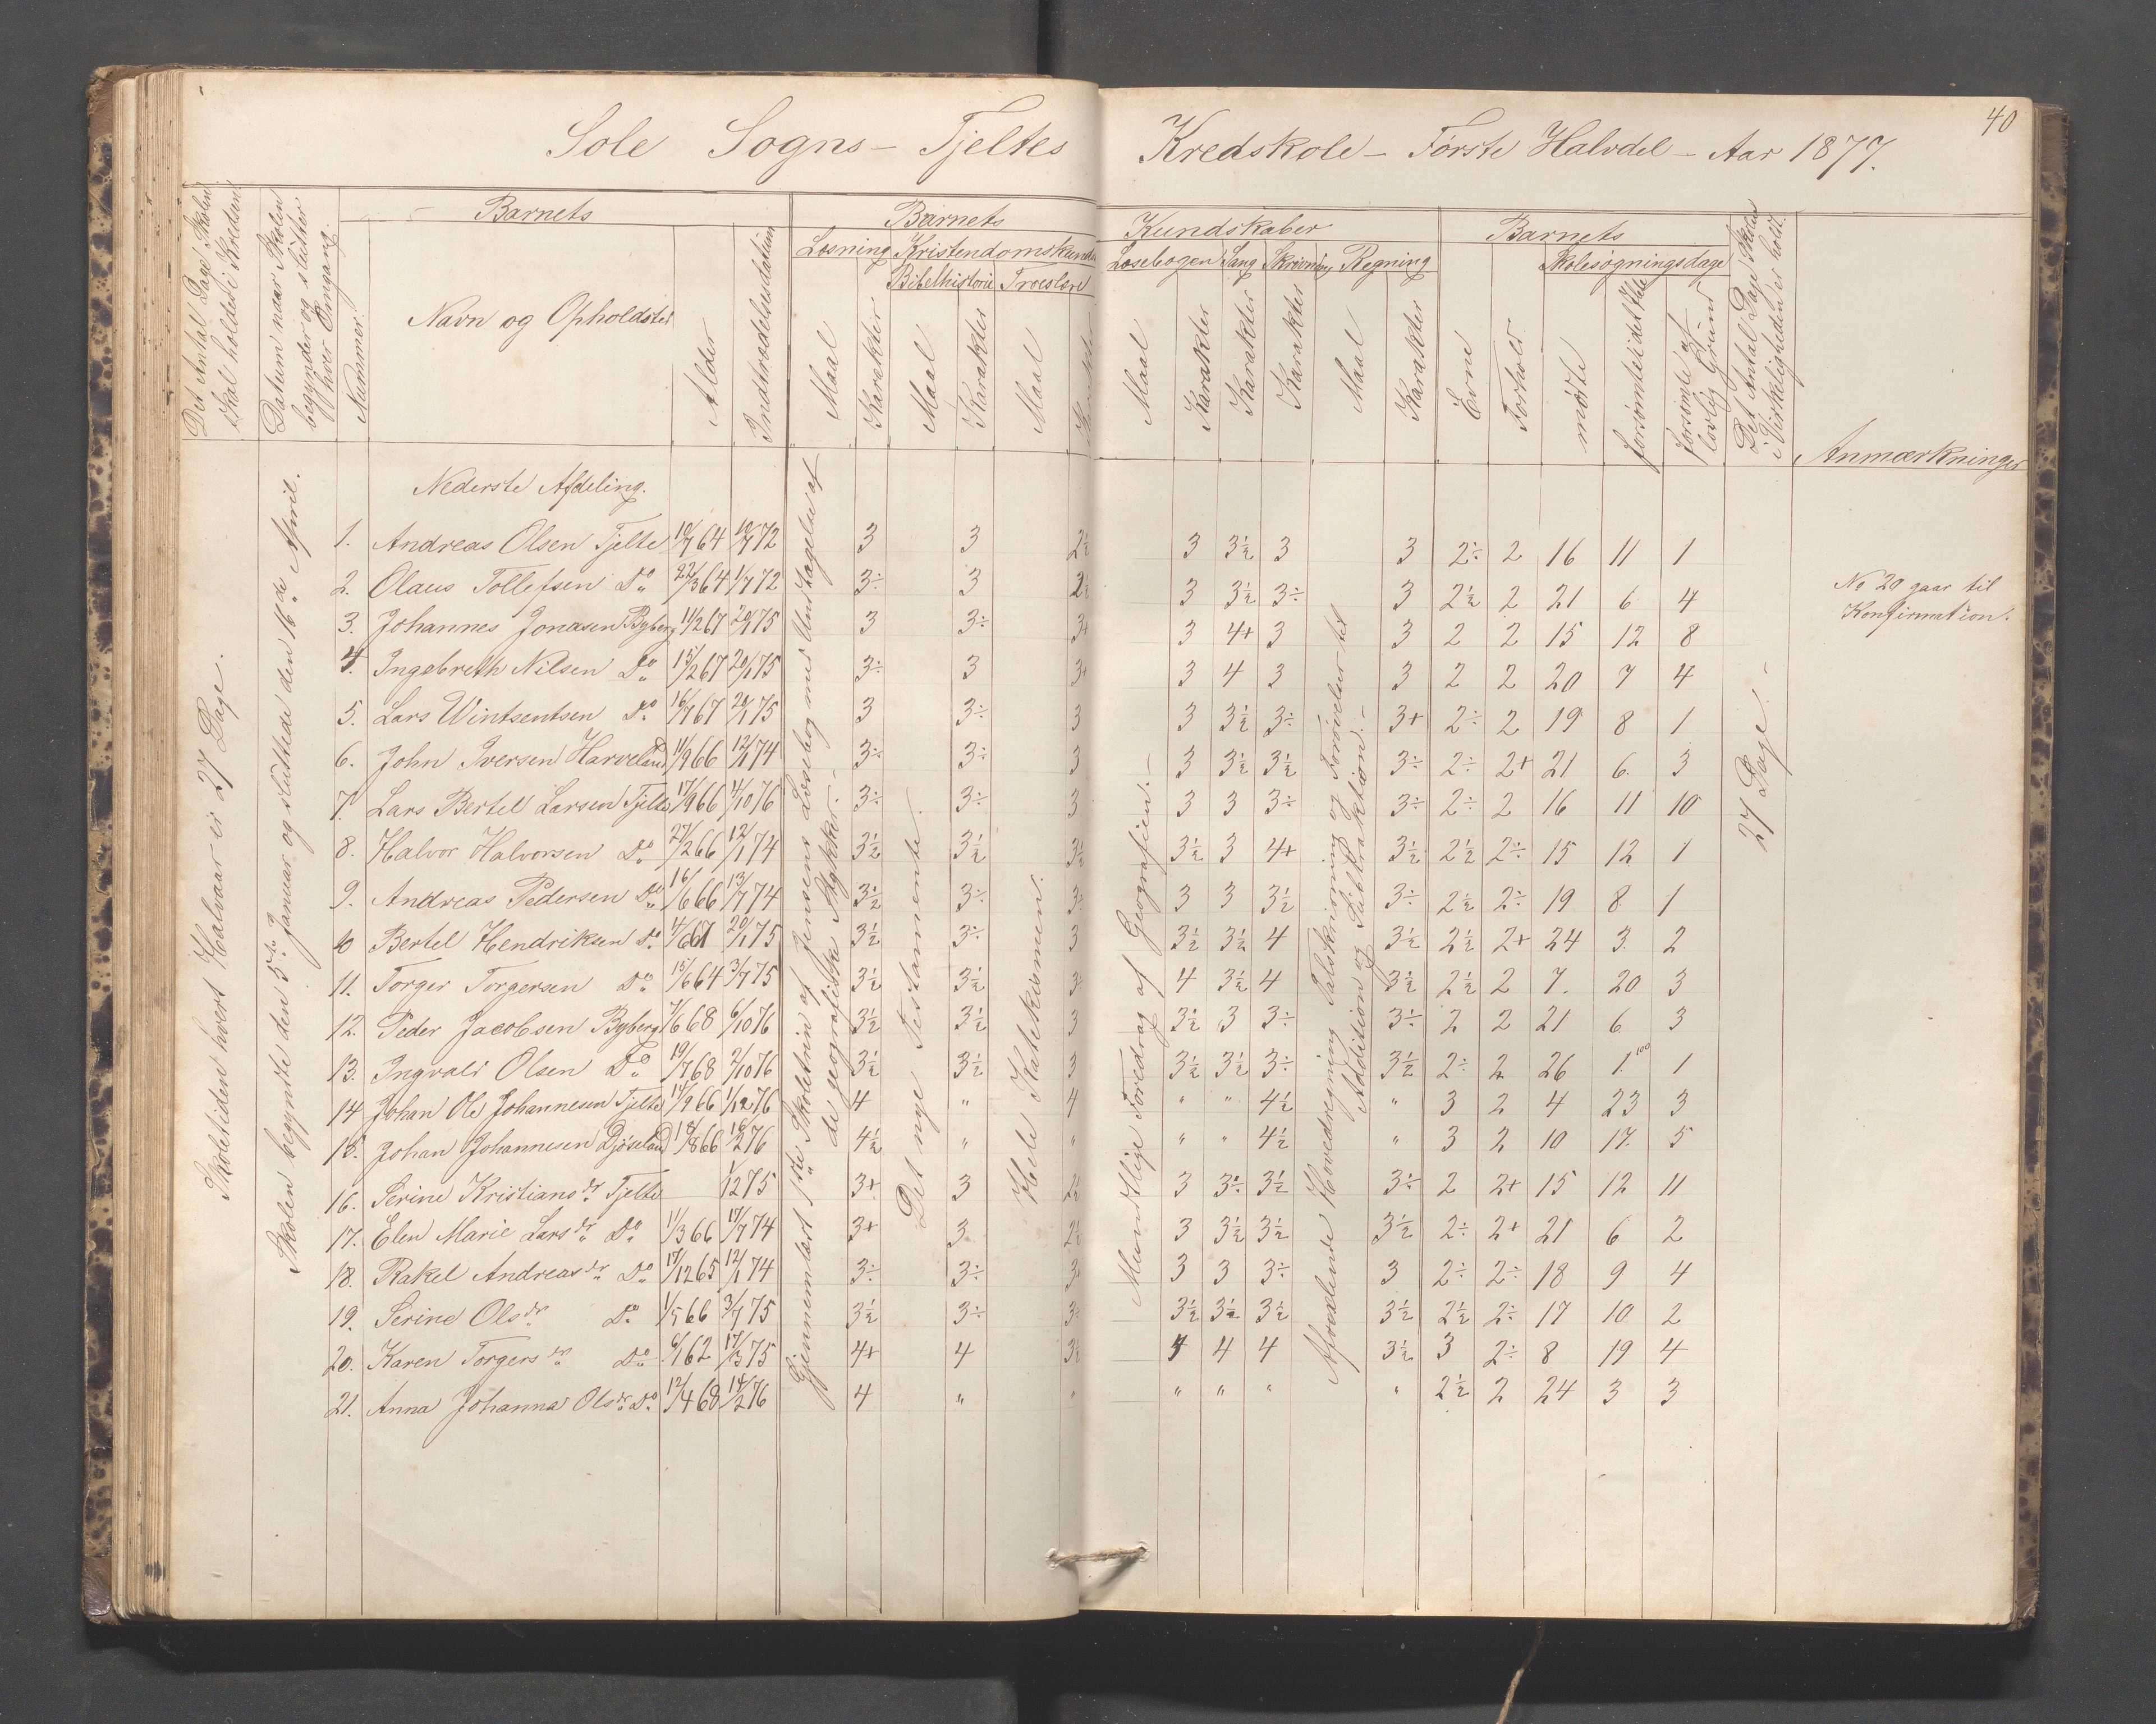 40
Sole Sogns – Tjeltes Kredskole – Første Halvdel – Aar 1877.
Det Antal Dage Skolen skal holdes i Kredsen
Datum naar Skolen begynder og slutter hver Omgang.
Nummer.
Barnets
Navn og Opholdsted
Alder
Indtrædelsesdatum
Barnets Kundskaber
Læsning Kristendomskund
Bibelhistorie Troeslære
Maal Karakter Maal Karakter Maal
Læsebogen Sang Skrivning Regning
Maal Karakter Karakter Karakter Maal Karakter
Barnets
Evne Forhold
Skolesøgningsdage
mødte forsømte i det Hele forsømte af lovlig Grund
Det Antal Dage Skolen i Virkeligheden er holdt.
Anmærkninger
Skoletiden hvert Halvaar er 27 Dage.
Skolen begyndte den 5te Januar og sluttede den 16de April.
Gjennemlæst 1ste Skoletrin af Jensens Læsebog med Undtagelse af de geografiske Stykker.
Det nye Testamente.
Hele Katekismen.
Mundtlige Foredrag af Geografien.
Afvexlende Hovedregning Talskrivning og Forøvelser til Addition og Subtraktion.
27 Dage.
Nederste Afdeling.
1. Andreas Olsen Tjelte 10/7 64 10/7 72 3 3 2½ 3 3½ 3 3 2÷ 2 16 11 1
2. Olaus Tollefsen Do 22/3 64 1/7 72 3÷ 3 2½ 3 3½ 3÷ 3 2½ 2 21 6 4
No 20 gaar til
Konfirmation.
3. Johannes Jonasen Byberg 11/2 67 20/1 75 3 3÷ 3+ 3 4+ 3 3 2 2 15 12 8
4. Ingebreth Nilsen Do 15/2 67 20/1 75 3÷ 3 3+ 3 4 3 3 2 2 20 7 4
5. Lars Wintsentsen Do 16/7 67 20/1 75 3 3÷ 3 3 3½ 3÷ 3+ 2÷ 2 19 8 1
6. John Iversen Harveland 11/9 66 12/1 74 3÷ 3÷ 3 3 3½ 3½ 3÷ 2÷ 2+ 21 6. 3
7. Lars Bertel Larsen Tjelte 17/9 66 4/10 76 3÷ 3÷ 3 3 3 3÷ 3÷ 2÷ 2 16 11 10
8. Halvor Halvorsen Do 27/2 66 12/1 74 3½ 3½ 3½ 3½ 3 4+ 3½ 2½ 2÷ 15 12 1
9. Andreas Pedersen Do 16/6 66 13/7 74 3½ 3÷ 3÷ 3 3 3½ 3÷ 2½ 2÷ 19 8 1
10 Bertel Hendriksen Do 20/1 75 3½ 3÷ 3 3½ 3½ 4 3½ 2½ 2+ 24 3 2
11. Torger Torgersen Do 15/6 64 3/7 75 3½ 3½ 3÷ 4 3½ 4 3½ 2½ 2 7. 20 3
12. Peder Jacobsen Byberg 7/6 68 6/10 76 3½ 3½ 3 3½ 3 3÷ 3÷ 2 2 21 6 3
13. Ingvald Olsen Do 19/7 68 2/10 76 3½ 3½ 3 3½ 3½ 3÷ 3½ 2÷ 2 26 1 1
14 Johan Ole Johannesen Tjelte 14/9 66 1/12 76 4 " 4 " " 4½ " 3 2 4 23 3
15. Johan Johannesen Djøseland 18/8 66 16/2 76 4½ " " " " 4½ " 3 2 10 17. 5
16. Serine Kristiansdr Tjelte 1/12 75 3+ 3 2½ 3 3÷ 3½ 3÷ 2 2+ 15 12 11
17. Elen Marie Larsdr Do 11/3 66 17/7 74 3+ 3 2½ 3 3½ 3½ 3½ 2÷ 2+ 21 6 2
18. Rakel Andreasdr Do 17/12 65 12/1 74 3÷ 3÷ 3+ 3 3 3÷ 3 2÷ 2÷ 18 9 4
19. Serine Olsdr Do 1/5 66 3/7 75 3½ 3÷ 3÷ 3½ 3½ 3½ 3½ 2½ 2÷ 17 10 2
20. Karen Torgersdr Do 6/1 62 17/3 75 4+ 4 3½ 4 4 4 3½ 3 2÷ 8 19 4
21. Anna Johanna Olsdr Do 12/4 68 14/2 76 4 " " " " " " 2½ 2 24 3 3